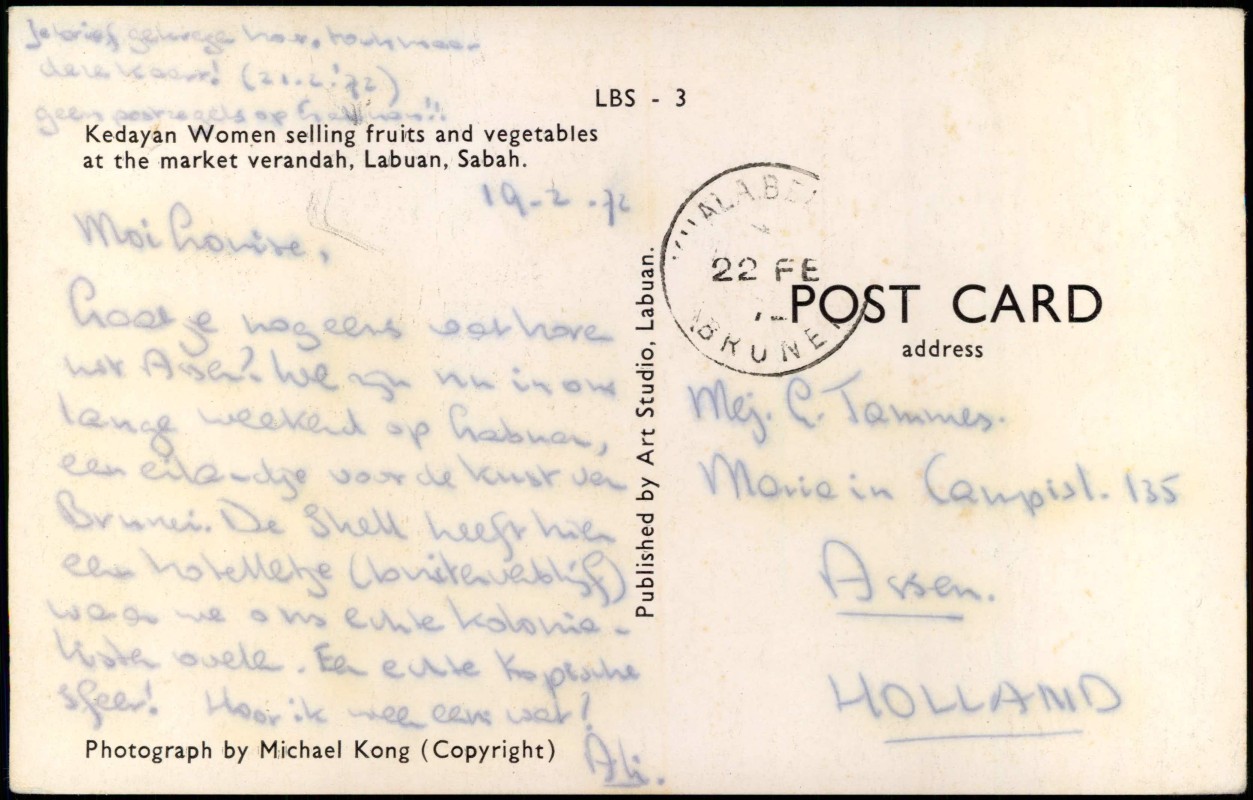 Je brief gekregen hoor, toch maar
deze kaart! (21.2.'72)
geen postzegels op Labuan!!
LBS - 3
Kedayan Women selling fruits and vegetables
at the market verandah, Labuan, Sabah.
19-2-72
Moi Louise,
Laat je nog eens wat horen
uit Assen? We zijn nu in ons
lange weekend op Labuan,
een eilandje voor de kust van
Brunei. De Shell heeft hier
een hotelletje (buitenverblijf)
waar we ons echte kolonia-
listen voelen. Een echte tropische
sfeer! Hoor ik weer eens wat?
Ali.
Photograph by Michael Kong (Copyright)
Published by Art Studio, Labuan.
KUALA BE
22 FE
BRUNEI
POST CARD
address
Mej. L. Tammes.
Maria in Campisl. 135
Assen.
HOLLAND